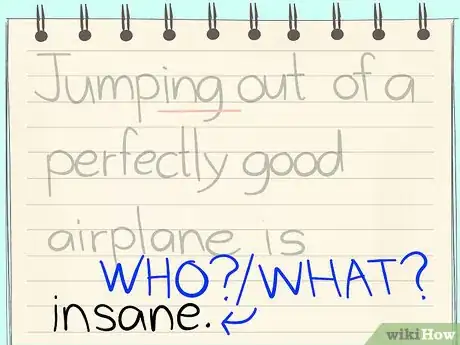 Jumping out of a
perfectly good
airplane is
WHO?/WHAT?
insane.
wikiHow